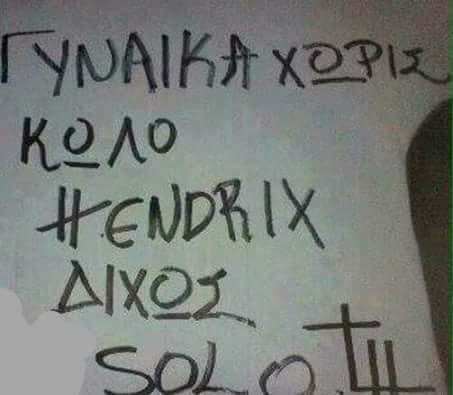 ΓΥΝΑΙΚΑ ΧΟΡΙΣ
ΚΟΛΟ
HENDRIX
ΔΙΧΟΣ
SOLO